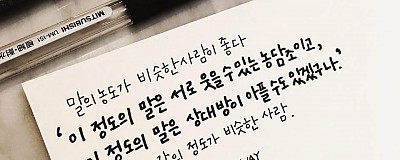 MITSUBISHI UM-151
말의 농도가 비슷한 사람이 좋다
'이 정도의 말은 서로 웃을 수 있는 농담조이고,
이 정도의 말은 상대방이 아플 수도 있겠구나.'
정도가 비슷한 사람.